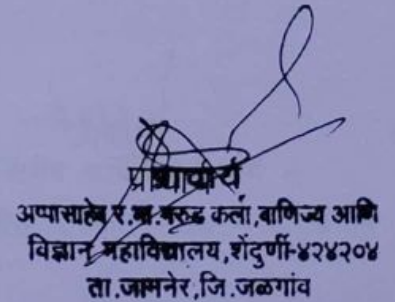 प्राचार्य
अप्पासाहेब र.भा.गरुड कला,वाणिज्य आणि
विज्ञान महाविद्यालय,शेंदुर्णी-४२४२०४
ता.जामनेर,जि.जळगांव